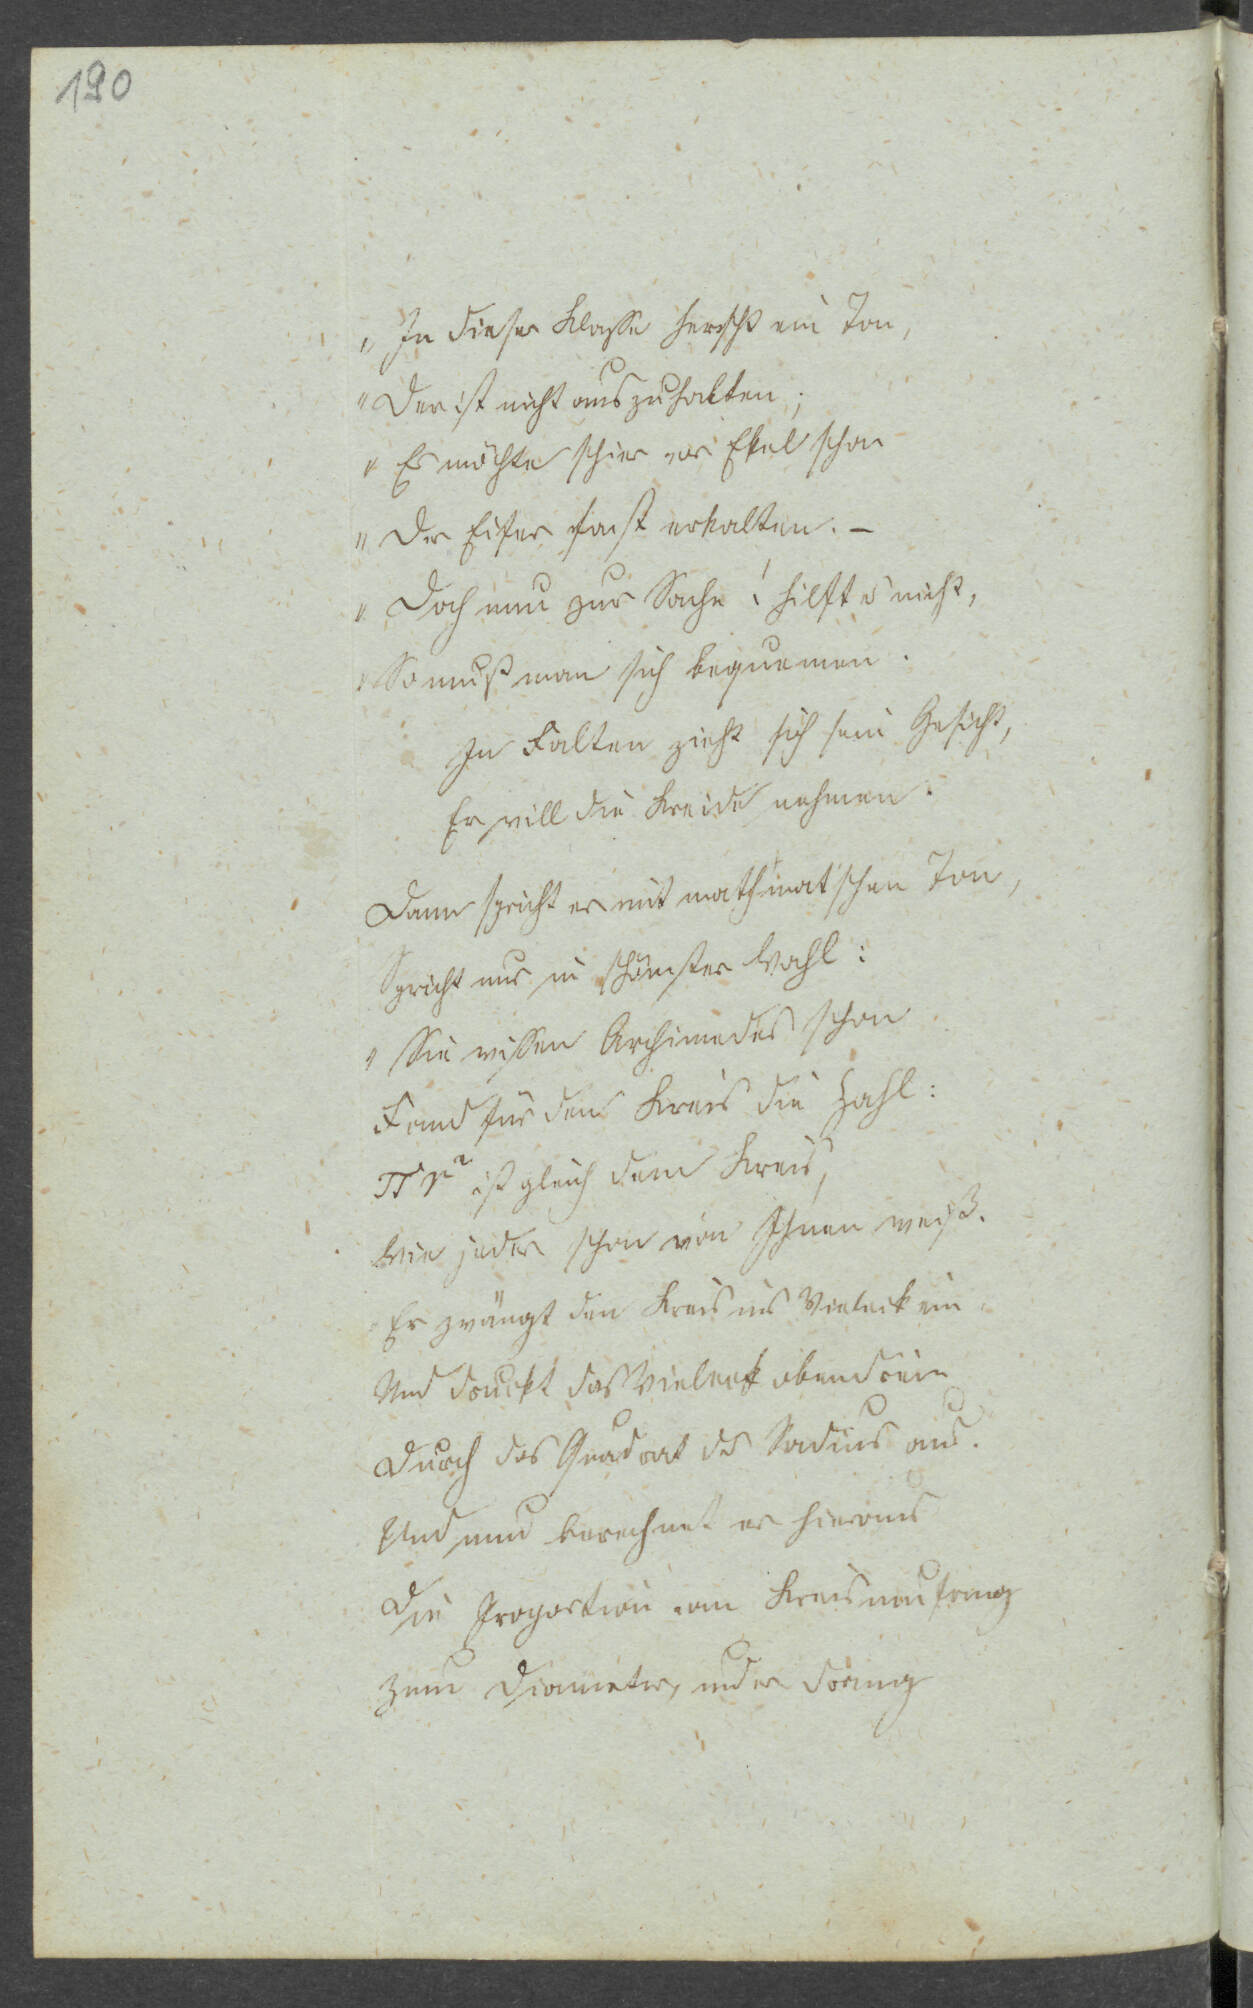 190
„ In dieser Klasse herrscht ein Ton,
„ Der ist nicht auszuhalten;
„ Es möchte schier vor Ekel schon
„ Der Eifer fast erkalten. –
„ Doch nun zur Sache! hilft es nicht,
„ So muß man sich bequemen.
In Falten zieht sich sein Gesicht,
Er will die Kreide nehmen.
Dann spricht er mit math'mat'schen Ton,
Spricht nur in schönster Wahl:
„ Sie wissen Archimedes schon
Fand für den Kreis die Zahl:
πr² ist gleich dem Kreis,
Wie jeder schon von Ihnen weiß.
Er zwängt den Kreis ins Vieleck ein
Und druckt das Vieleck obendrein
Durch das Quadrat des Radius aus.
Und nun berechnet er hieraus
Die Proportion vom Kreisumfang
Zum Diameter, und er drang